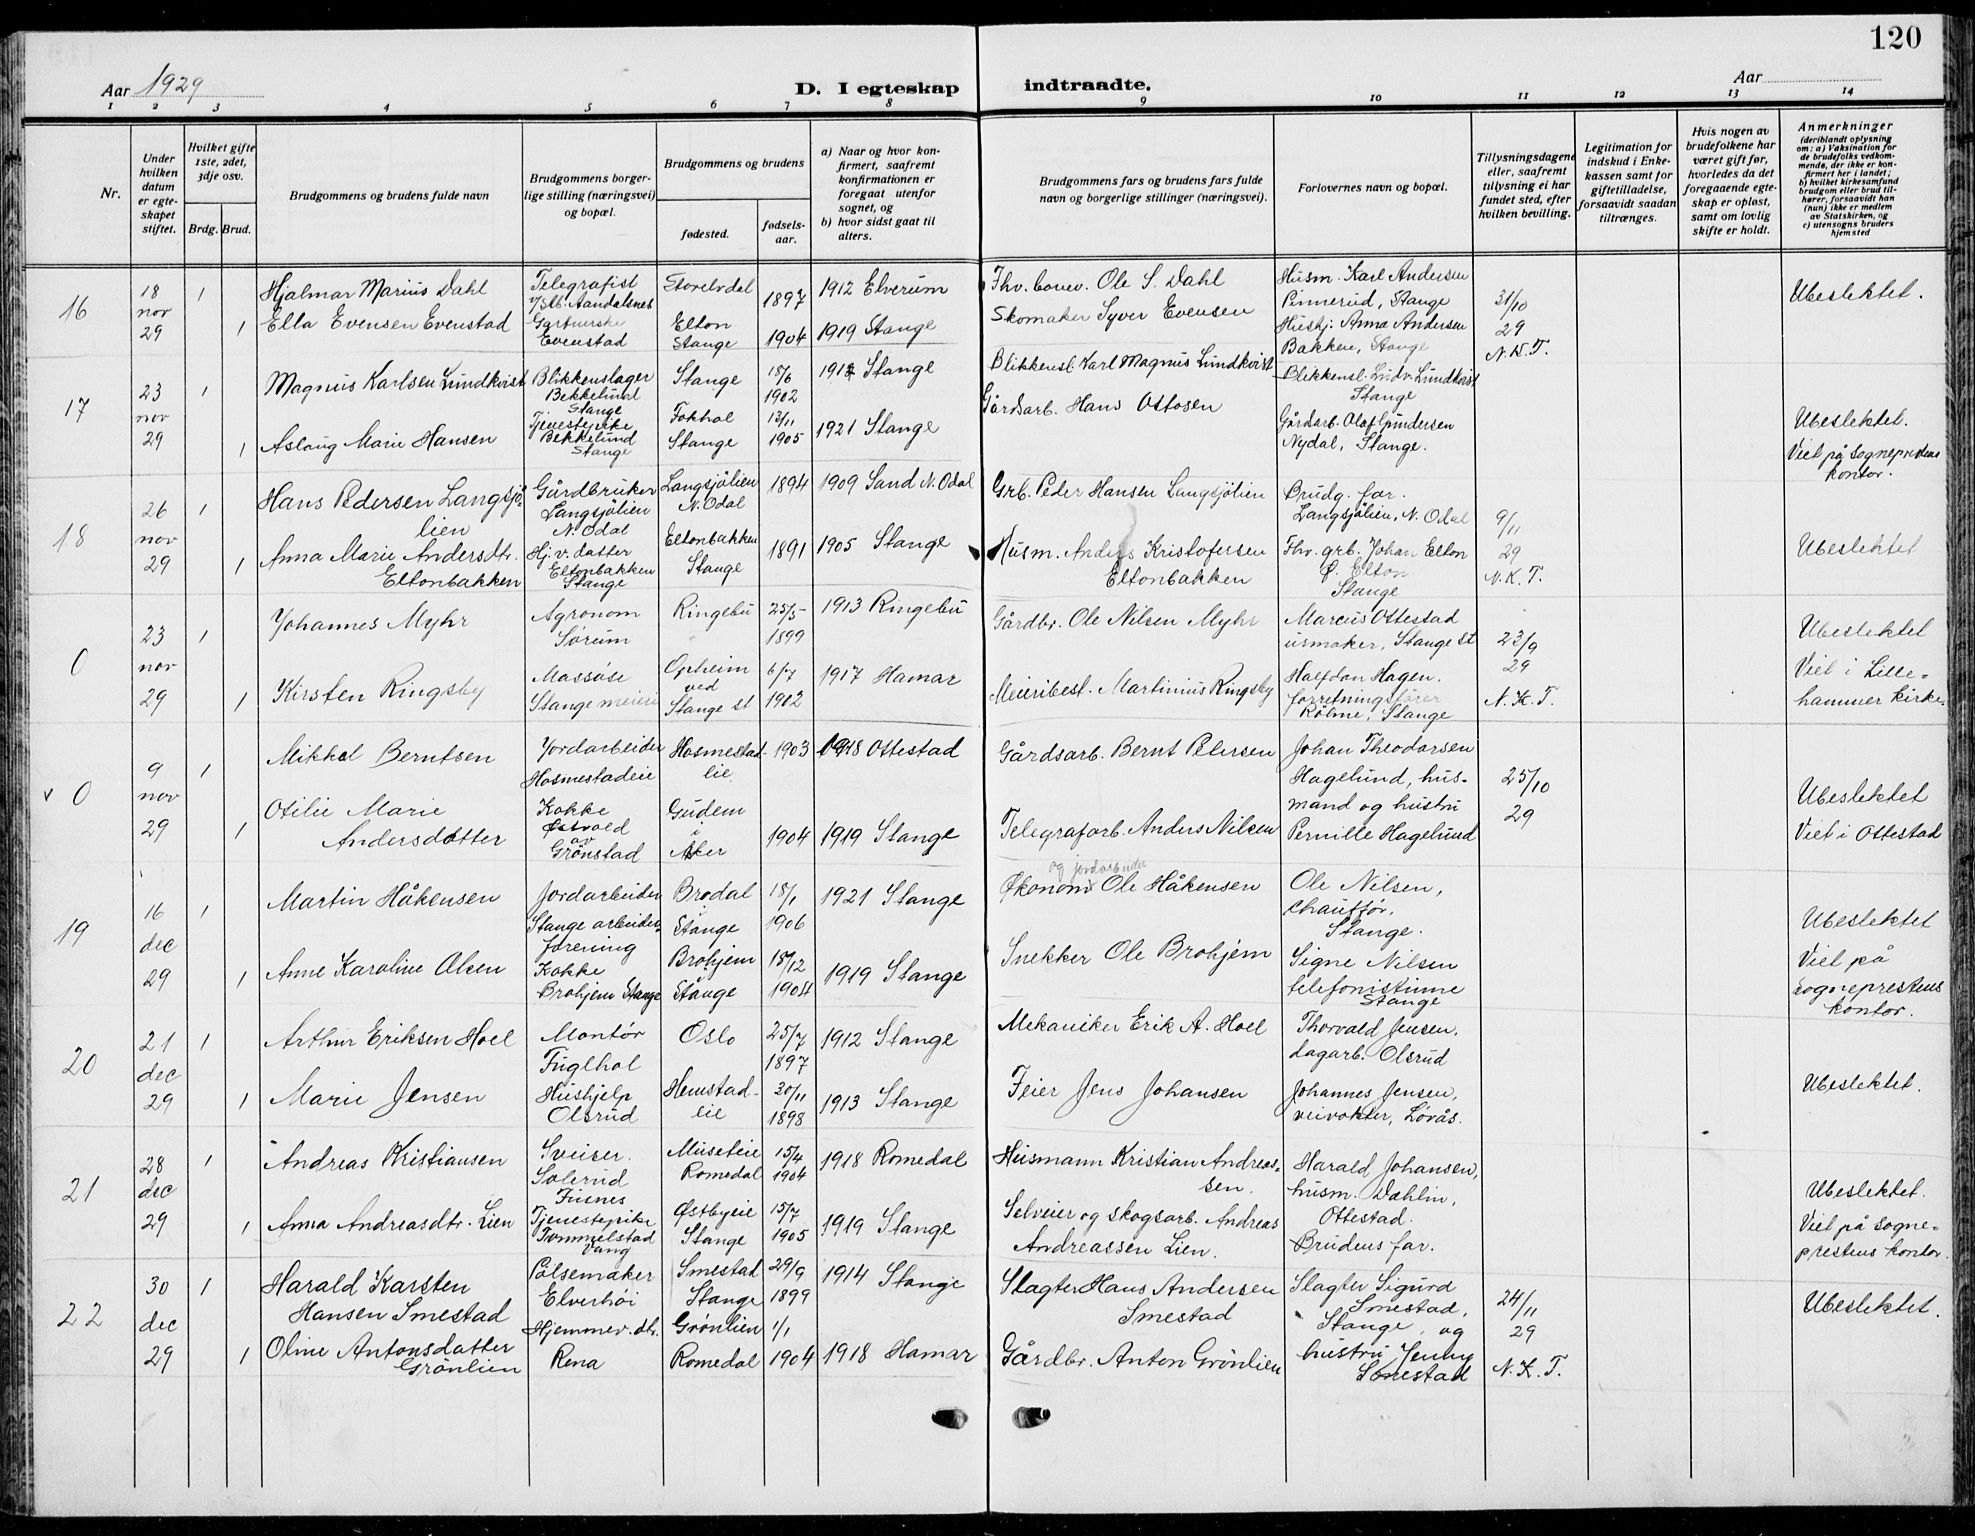 120
Aar 1929
D. I egteskap indtraadte.
Aar
1 2 3 4 5 6 7 8 9 10 11 12 13 14
Nr.
Under hvilken datum er egteskapet stiftet.
Hvilket gifte 1ste, 2det, 3dje osv.
Brdg. Brud.
Brudgommens og brudens fulde navn
Brudgommens borgerlige stilling (næringsvei) og bopæl.
Brudgommens og brudens
fødested.
fødselsaar.
a) Naar og hvor konfirmert, saafremt konfirmationen er foregaat utenfor sognet, og
b) hvor sidst gaat til alters.
Brudgommens fars og brudens fars fulde navn og borgerlige stillinger (næringsvei).
Forlovernes navn og bopæl.
Tillysningsdagene eller, saafremt tillysning ei har fundet sted, efter hvilken bevilling.
Legitimation for indskud i Enkekassen samt for giftetilladelse, forsaavidt saadan tiltrænges.
Hvis nogen av brudefolkene har været gift før, hvorledes da det foregaaende egteskap er opløst, samt om lovlig skifte er holdt.
Anmerkninger
(deriblandt oplysning om: a) Vaksination for de brudefolks vedkommende, der ikke er konfirmert her i landet;
b) hvilket kirkesamfund brudgom eller brud tilhører, forsaavidt han (hun) ikke er medlem av Statskirken, og
c) utensogns bruders hjemsted
16
18 nov 29
1
Hjalmar Marius Dahl
Telegrafist
v/Stb. Aandalsnes
Storelvdal
1897
1912 Elverum
Fhv. bouv. Ole S. Dahl
Husm. Karl Andersen
Pinnerud, Stange
31/10 29
N.K.T.
Ubeslektet.
1
Ella Evensen Evenstad
Gartnerske
Evenstad
Elton
Stange
1904
1919 Stange
Skomaker Syver Evensen
Hushj. Anna Andersen
Bakken, Stange
17
23 nov 29
1
Magnus Karlsen Lundkvist
Blikkenslager
Bekkelund
Stange
Stange
18/6
1902
1917 Stange
Blikkensl. Karl Magnus Lundkvist
Blikkensl. Ludv. Lundkvist
Stange
Ubeslektet.
Viet på sogneprestens
kontor.
1
Aslaug Marie Hansen
Tjenestepike
Bekkelund
Stange
Fokhol
Stange
13/11
1905
1921 Stange
Gårdsarb. Hans Ottosen
Gårdarb. Olaf Gundersen
Nydal, Stange.
18
26 nov 29
1
Hans Pedersen Langsjö-
lien
Gårdbruker
Langsjölien
N. Odal
Langsjölien
N. Odal
1894
1909 Sand N. Odal
Grb. Peder Hansen Langsjölien
Brudg. far.
Langsjölien, N. Odal
9/11 29
N.K.T.
Ubeslektet
1
Anna Marie Andersdtr.
Eltonbakken
Hj.v. datter
Eltonbakken
Stange
Eltonbakken
Stange
1891
1905 Stange
Husm. Anders Kristofersen
Eltonbakken
Fhv. grb. Johan Elton
Ø. Elton
Stange
0
23 nov 29
1
Johannes Myhr
Agronom
Sørum
Ringebu
25/5
1899
1913 Ringebu
Gårdbr. Ole Nilsen Myhr
Marcus Ottestad
urmaker, Stange st
23/9 29
N.K.T.
Ubeslektet
Viet i Lille-
hammer kirke.
1
Kirsten Ringsby
Massøse
Stange meieri
Opheim
ved
Stange st
6/7
1902
1917 Hamar
Meieribest. Martinius Ringsby
Halfdan Hagen.
forretningsfører
Rölme, Stange
v 0
9 nov 29
1
Mikkel Berntsen
Jordarbeider
Hosmestadeie
Hosmestad-
eie
1903
1918 Ottestad
Gårdsarb. Bernt Petersen
Johan Theodorsen
Hagelund, hus-
mand og hustru
Pernille Hagelund
25/10 29
Ubeslektet
Viet i Ottestad
1
Otilie Marie
Andersdatter
Kokke
Østvold
av
Grönstad
Gudem
i
Aker
1904
1919 Stange
Telegrafarb. Anders Nilsen
19
16 dec 29
1
Martin Håkensen
Jordarbeider
Stange arbeider-
forening
Brodal
Stange
18/1
1906
1921 Stange
og jordarbeider
Økonom Ole Håkensen
Ole Nilsen,
chauffør,
Stange.
Ubeslektet
Viet på
sogneprestens
kontor.
1
Anne Karoline Olsen
Kokke
Brohjem Stange
Brohjem
Stange
18/12
1904
1919 Stange
Snekker Ole Brohjem
Signe Nilsen
telefonistinne
Stange
20
21 dec 29
1
Arthur Eriksen Hoel
Montör
Fuglhol
Oslo
25/7
1897
1912 Stange
Mekaniker Erik A. Hoel
Thorvald Jensen,
dagarb. Olsrud
Ubeslektet.
1
Marie Jensen
Hushjelp
Olsrud
Hemstad-
eie
30/11
1898
1913 Stange
Feier Jens Johansen
Johannes Jensen,
veivokter, Løvås.
21
28 dec 29
1
Andreas Kristiansen
Sveiser.
Solerud
Furnes
Museteie
Romedal
15/4
1904
1918 Romedal
Husmann Kristian Andreas-
sen.
Harald Johansen,
husm. Dahlin,
Ottestad.
Ubeslektet.
Viet på sogne-
prestens kontor.
1
Anna Andreasdtr. Lien
Tjenestepike
Tommelstad
Vang
Østbyeie
Stange
15/7
1905
1919 Stange
Selveier og skogsarb. Andreas
Andreassen Lien.
Brudens far.
22
30 dec 29
1
Harald Karsten
Hansen Smestad
Pølsemaker
Elverhøi
Smestad
Stange
29/9
1899
1914 Stange
Slagter Hans Andersen
Smestad
Slagter Sigurd
Smestad,
Stange, og
hustru Jenny
Smestad
24/11 29
N.K.T.
Ubeslektet.
1
Oline Antonsdatter
Grönlien
Hjemmev. dtr.
Rena
Grönlien
Romedal
1/1
1904
1918 Hamar
Gårdbr. Anton Grönlien